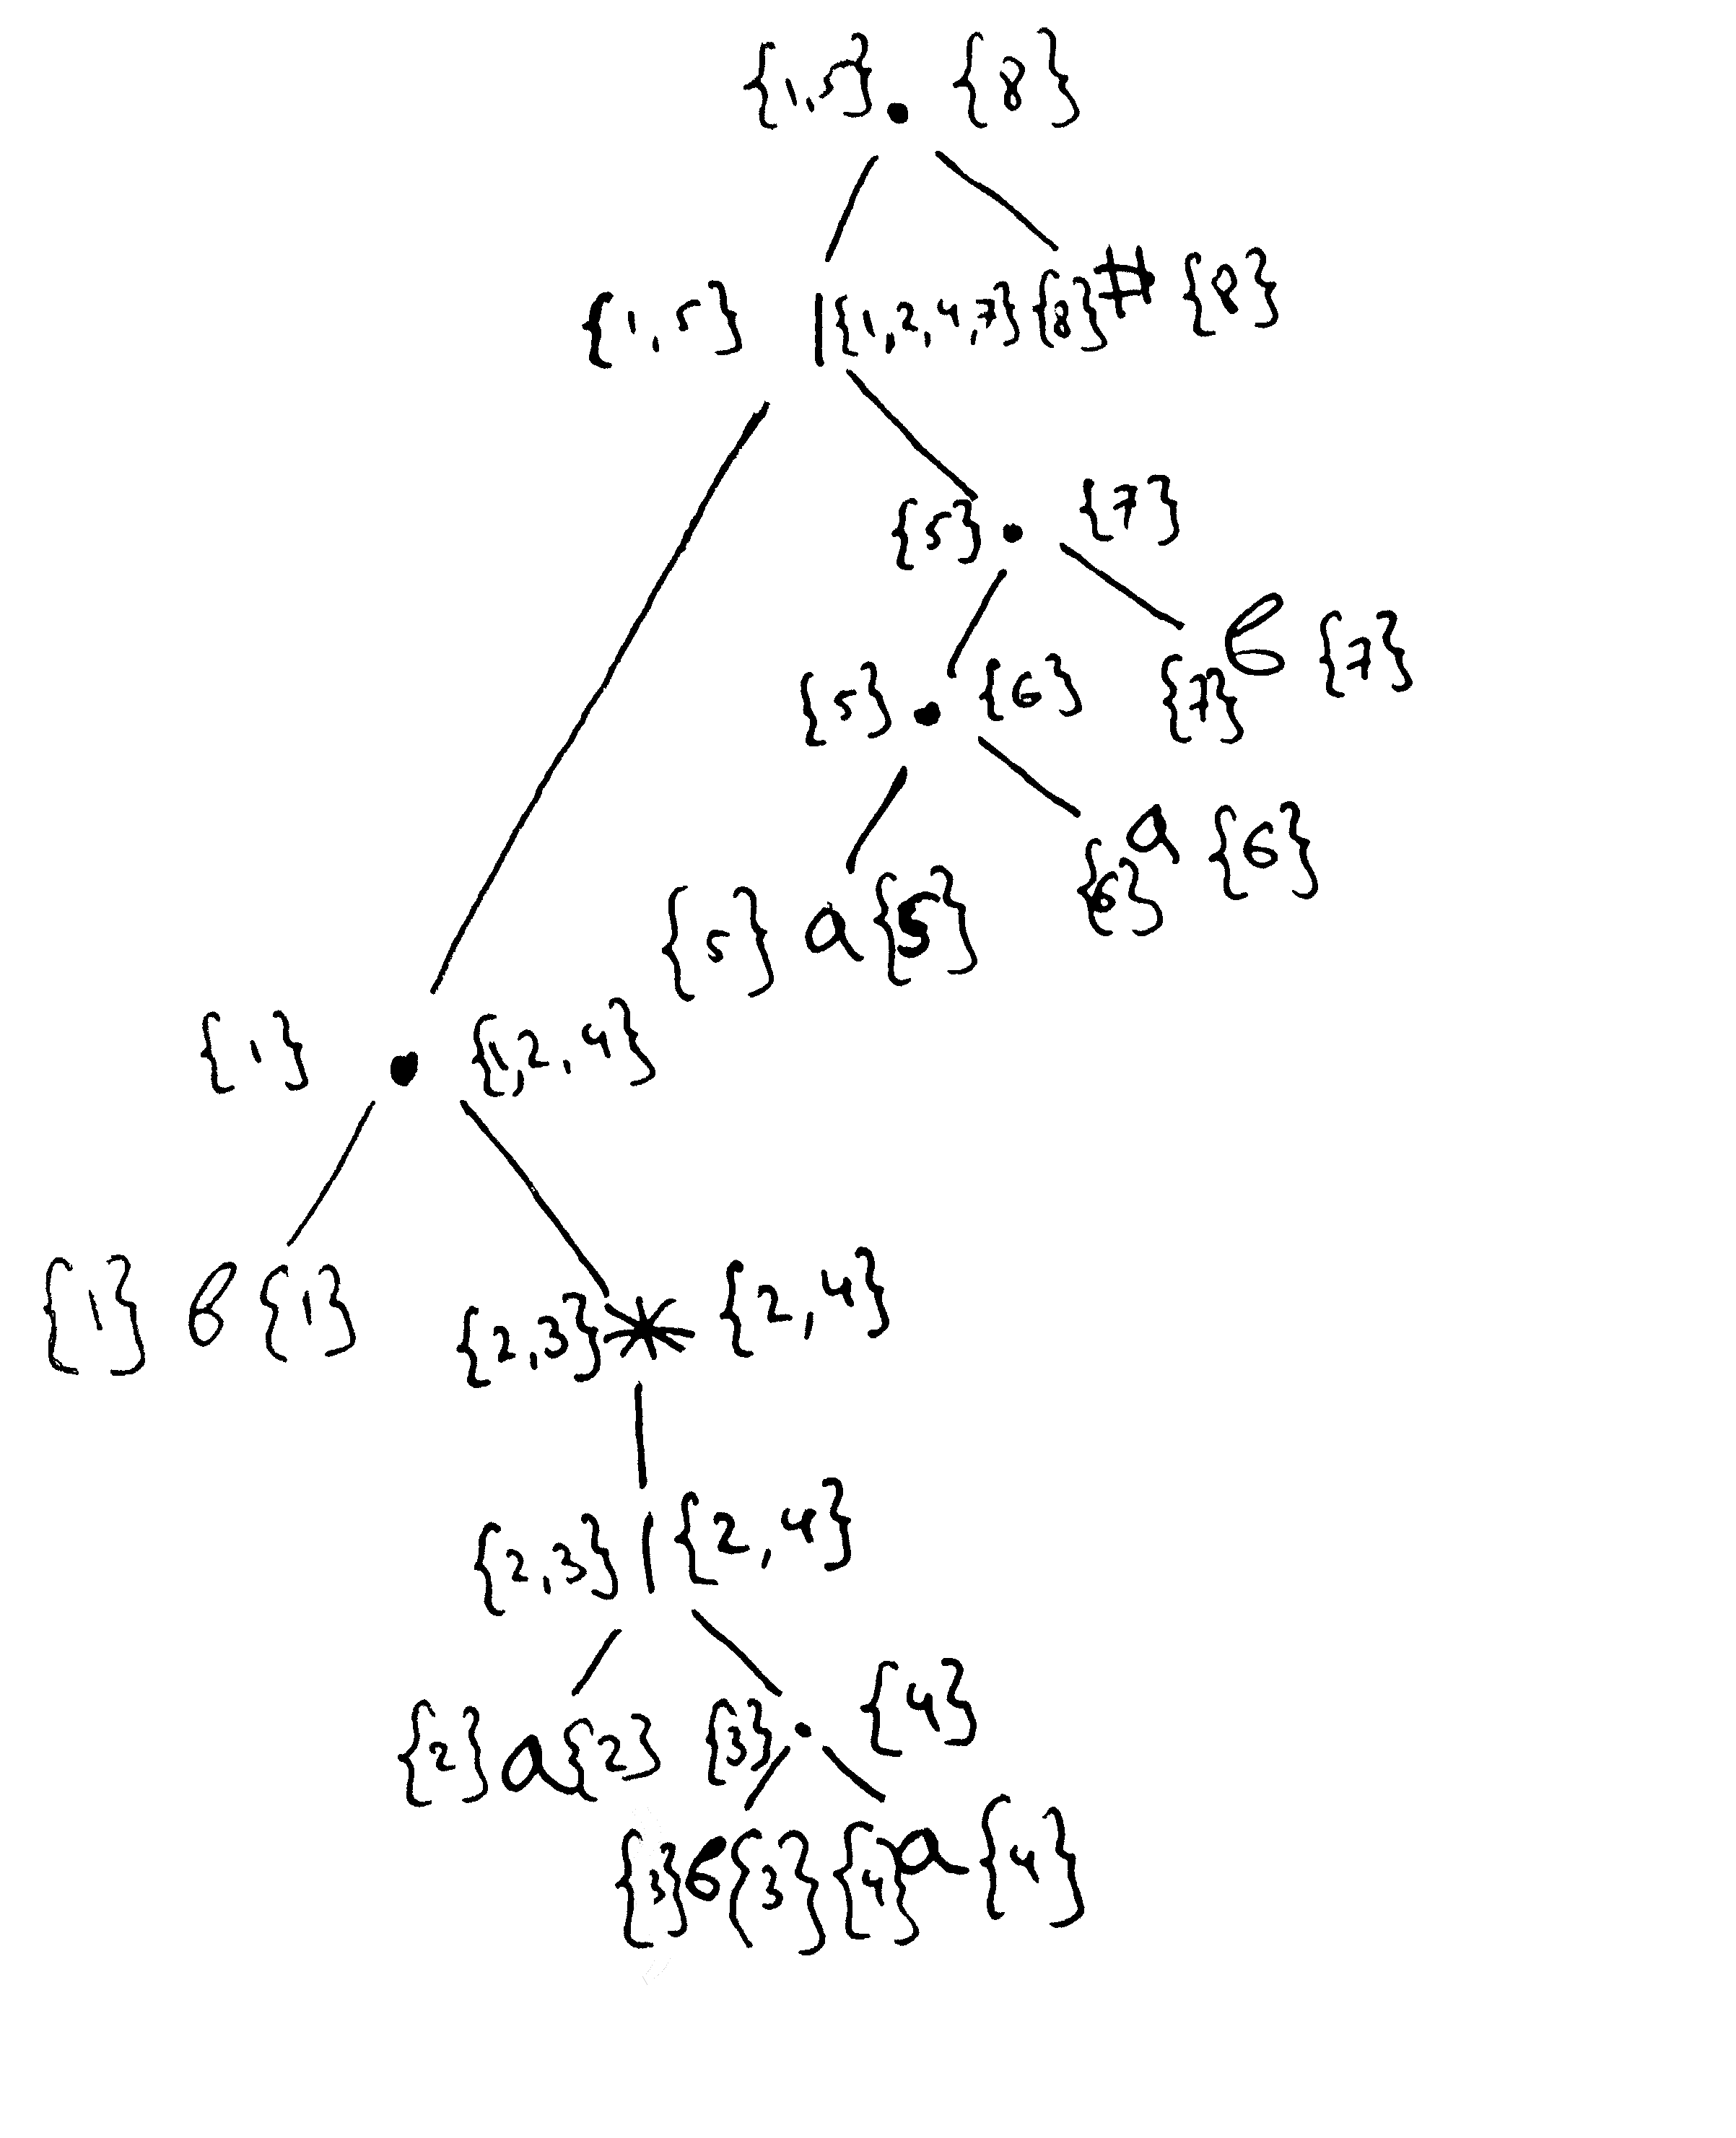 {1,5} • {8}
{1,5} | {1,2,4,7} {8} # {8}
{5} • {7}
{7} в {7}
{5} • {6}
{6} a {6}
{5} a {5}
{1} • {1,2,4}
{1} в {1}
{2,3} * {2,4}
{2,3} | {2,4}
{2} a {2} {3} • {4}
{3} в {3} {4} a {4}